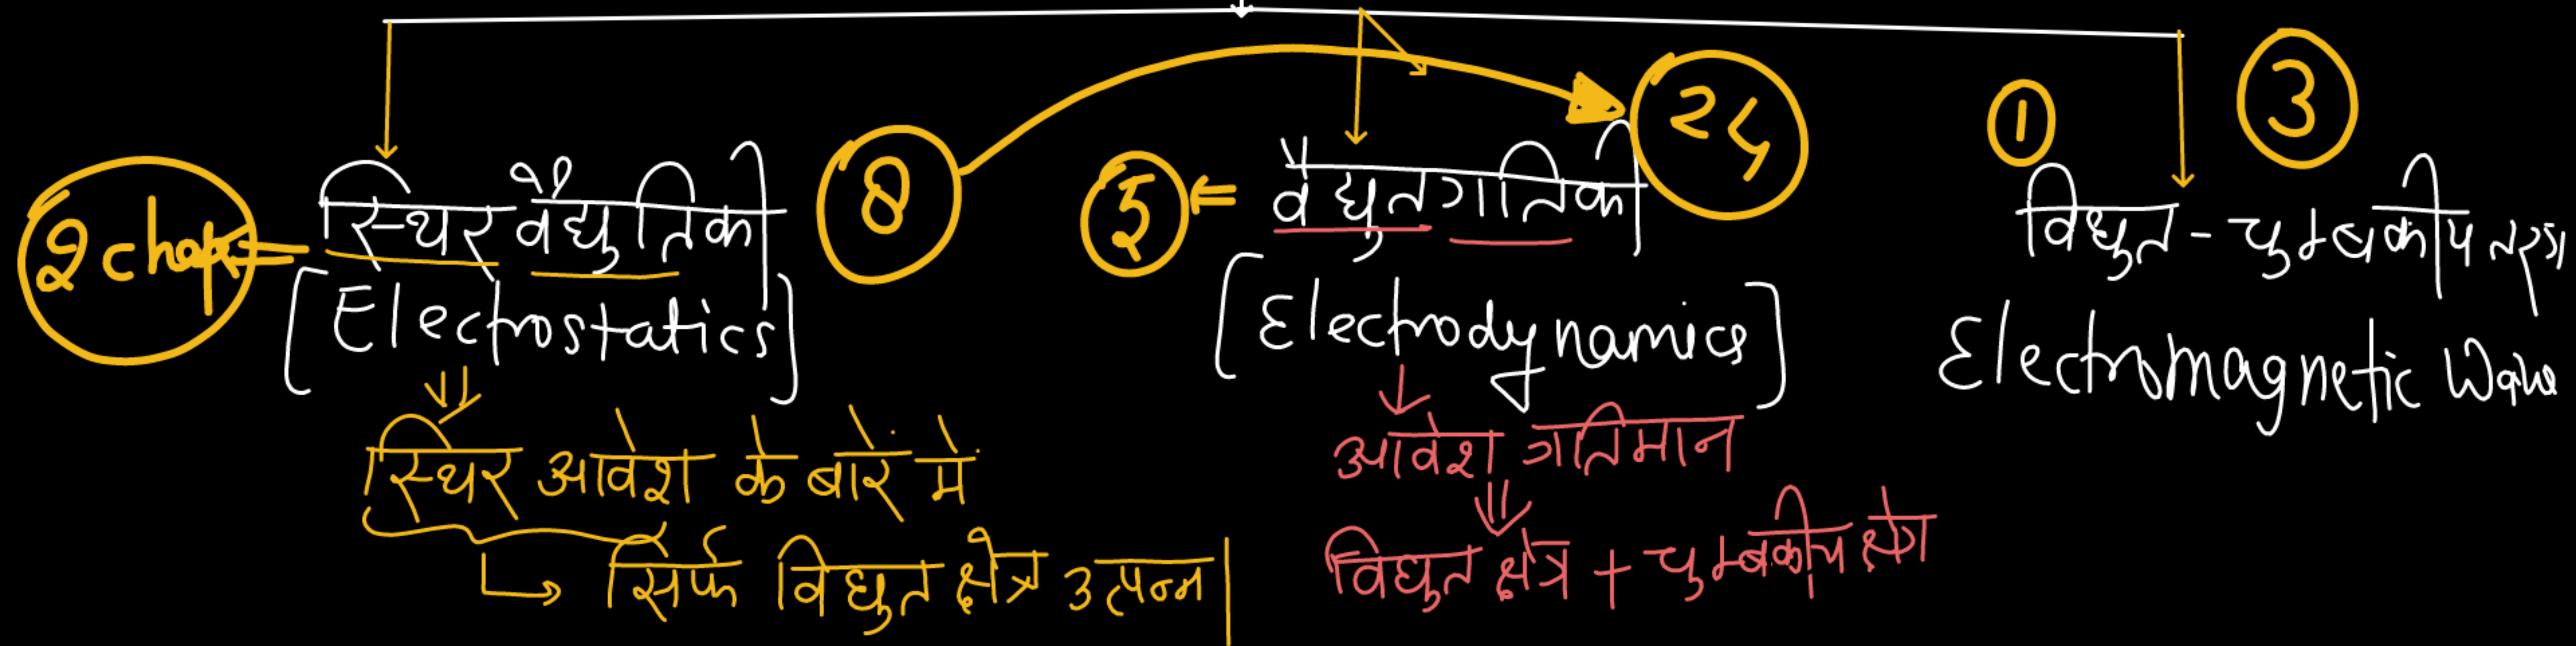 2 chap
स्थिर वैद्युतिकी
[Electrostatics]
स्थिर आवेश के बारे में
सिर्फ विद्युत क्षेत्र उत्पन्न
8
5
वैद्युतगतिकी
24
[Electrodynamics]
आवेश गतिमान
विद्युत क्षेत्र + चुम्बकीय क्षेत्र
1
3
विद्युत - चुम्बकीय तरंग
Electromagnetic Wave